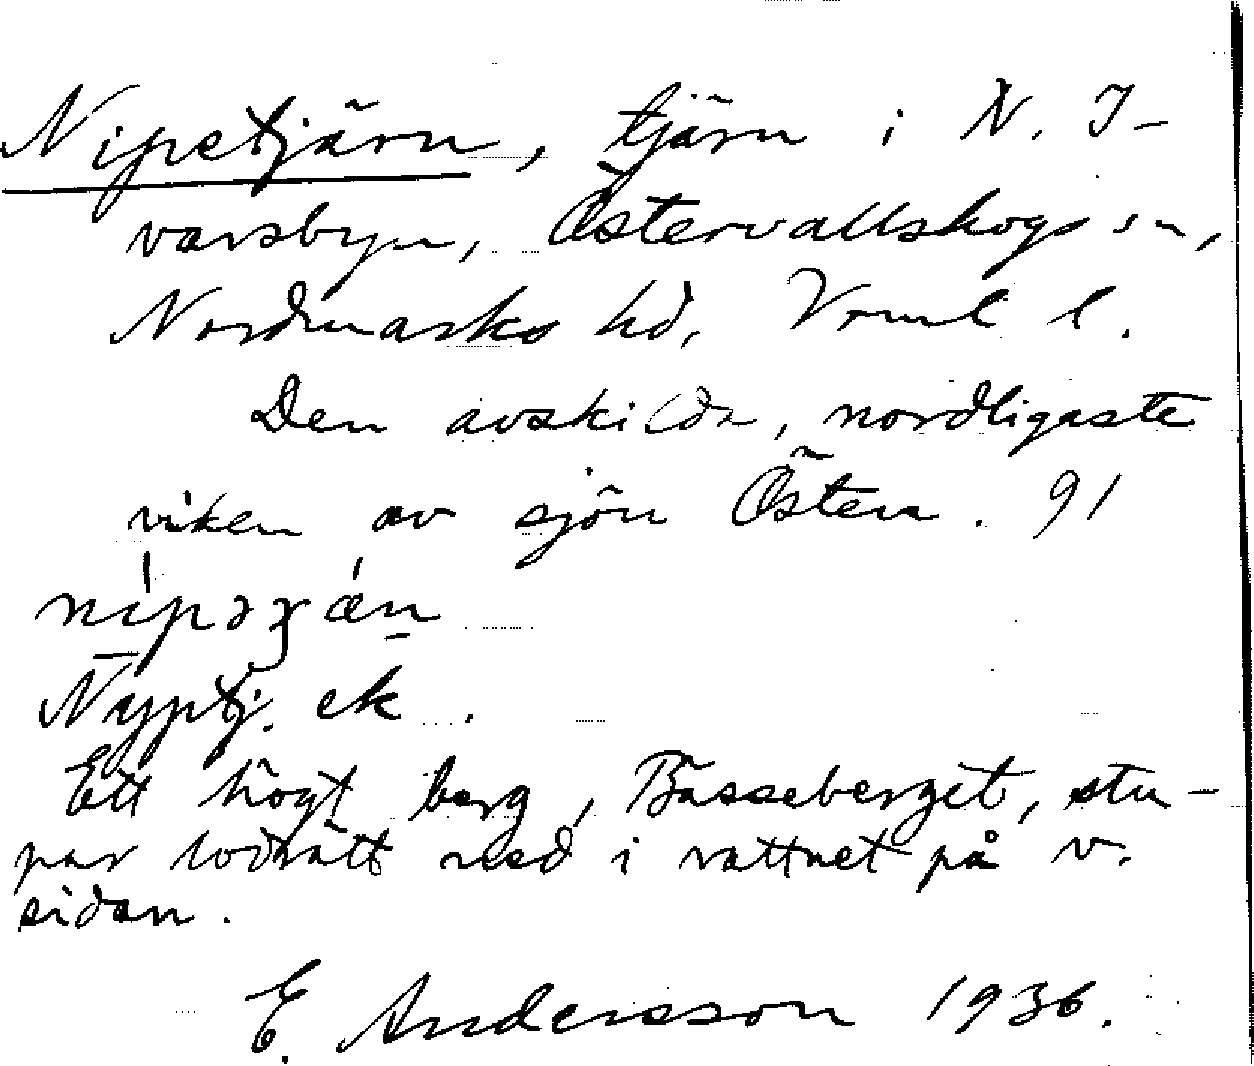 Nipetjärn, tjärn i N. I-
varsbyn, Östervallskogs sn,
Nordmarks hd, Vrml l.
Den avskilda, nordligaste
viken av sjön Östen. 91
Nyptj. ek.
Ett högt berg, Båsseberget, stu-
par lodrätt ned i vattnet på v.
sidan.
E. Andersson 1936.